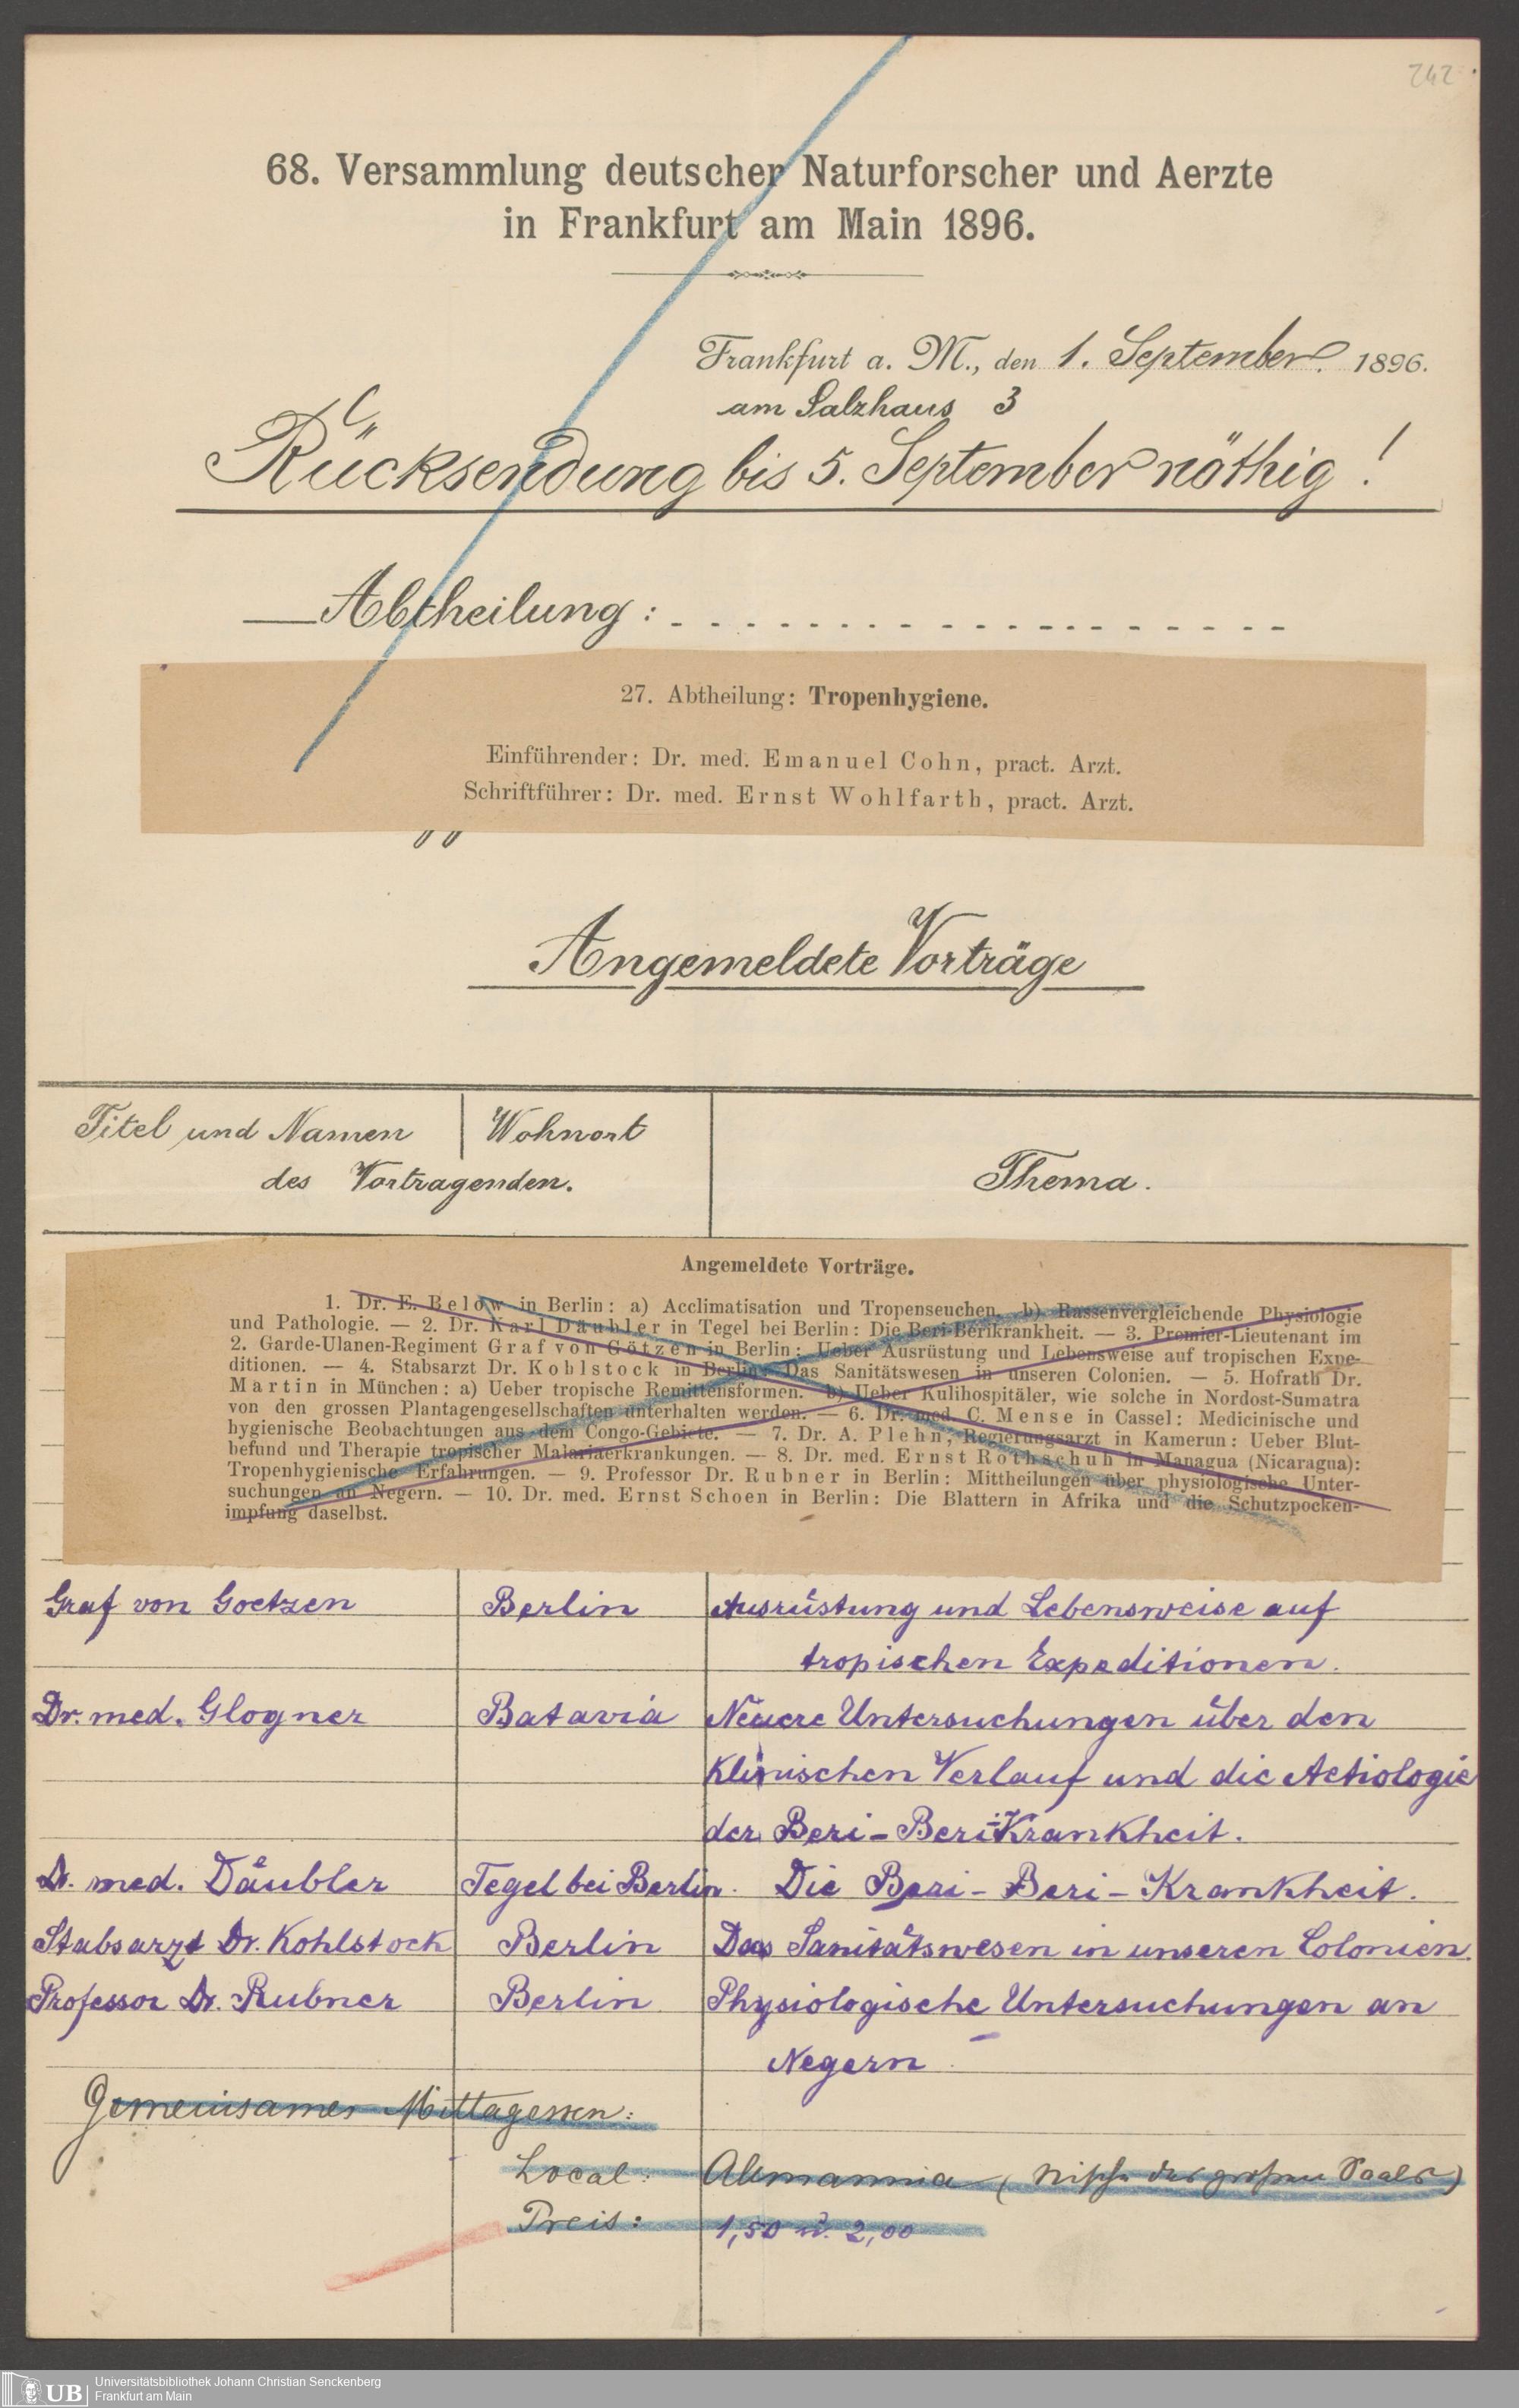 242.
68. Versammlung deutscher Naturforscher und Aerzte
in Frankfurt am Main 1896.
Frankfurt a. M., den 1. September. 1896.
am Salzhaus 3
Rücksendung bis 5. September nöthig!
Abtheilung: . . . . . . . . . . . . . . . . . . . .
27. Abtheilung: Tropenhygiene.
Einführender: Dr. med. Emanuel Cohn, pract. Arzt.
Schriftführer: Dr. med. Ernst Wohlfarth, pract. Arzt.
Angemeldete Vorträge
Titel und Namen | Wohnort
des Vortragenden.
Thema.
Angemeldete Vorträge.
1. Dr. E. Below in Berlin: a) Acclimatisation und Tropenseuchen. b) Rassenvergleichende Physiologie
und Pathologie. — 2. Dr. Karl Däubler in Tegel bei Berlin: Die Beri-Berikrankheit. — 3. Premier-Lieutenant im
2. Garde-Ulanen-Regiment Graf von Götzen in Berlin: Ueber Ausrüstung und Lebensweise auf tropischen Expe-
ditionen. — 4. Stabsarzt Dr. Kohlstock in Berlin: Das Sanitätswesen in unseren Colonien. — 5. Hofrath Dr.
Martin in München: a) Ueber tropische Remittensformen. b) Ueber Kulihospitäler, wie solche in Nordost-Sumatra
von den grossen Plantagengesellschaften unterhalten werden. — 6. Dr. med. C. Mense in Cassel: Medicinische und
hygienische Beobachtungen aus dem Congo-Gebiete. — 7. Dr. A. Plehn, Regierungsarzt in Kamerun: Ueber Blut-
befund und Therapie tropischer Malariaerkrankungen. — 8. Dr. med. Ernst Rothschuh in Managua (Nicaragua):
Tropenhygienische Erfahrungen. — 9. Professor Dr. Rubner in Berlin: Mittheilungen über physiologische Unter-
suchungen an Negern. — 10. Dr. med. Ernst Schoen in Berlin: Die Blattern in Afrika und die Schutzpocken-
impfung daselbst.
Graf von Goetzen Berlin Ausrüstung und Lebensweise auf
tropischen Expeditionen.
Dr. med. Glogner Batavia Neuere Untersuchungen über den
klinischen Verlauf und die Aetiologie
der Beri-Beri-Krankheit.
Dr. med. Däubler Tegel bei Berlin. Die Beri-Beri-Krankheit.
Stabsarzt Dr. Kohlstock Berlin Das Sanitätswesen in unseren Colonien.
Professor Dr. Rubner Berlin Physiologische Untersuchungen an
Negern.
Gemeinsames Mittagessen:
Local: Alemannia (Nische des großen Saales)
Preis: 1,50 u. 2,00
UB
Universitätsbibliothek Johann Christian Senckenberg
Frankfurt am Main